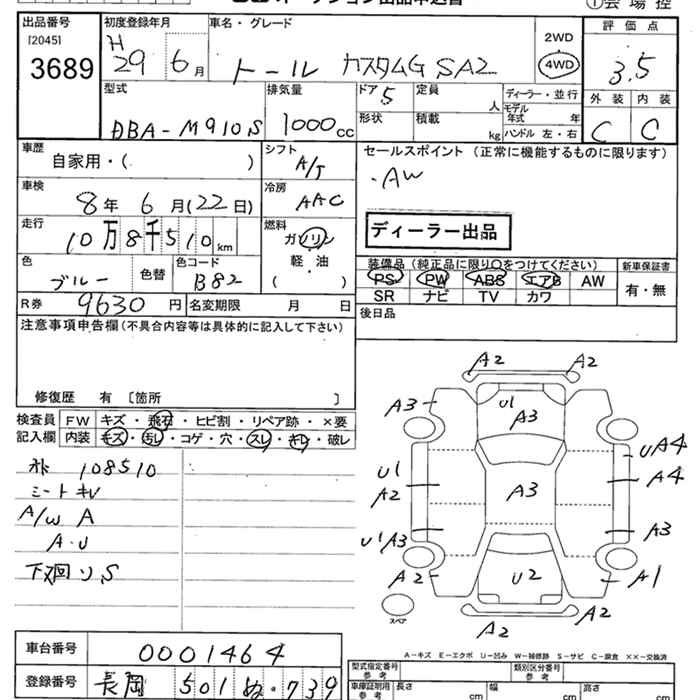 オークション出品申込書
①会場控
出品番号 [2045] 3689
初度登録年月 H29 6月
車名・グレード トール カスタムG SA2
2WD
4WD
評価点 3.5
外装 C
内装 C
型式 DBA-M910S
排気量 1000cc
ドア 5
形状
定員 人
積載 kg
ディーラー・並行
モデル年式 年
ハンドル 左・右
車歴 自家用・( )
シフト A/T
セールスポイント(正常に機能するものに限ります)
・AW
車検 8年 6月(22日)
冷房 AAC
走行 10万8千510km
燃料 ガソリン
軽・油
( )
ディーラー出品
色 ブルー 色替
色コード B82
装備品(純正品に限り○をつけてください)
PS PW ABS エアB AW
SR ナビ TV カワ
新車保証書
有・無
R券 9630円
名変期限 月 日
後日品
注意事項申告欄(不具合内容等は具体的に記入して下さい)
修復歴 有 〔箇所 〕
検査員記入欄
FW キズ・飛石・ヒビ割・リペア跡・×要
内装 キズ・汚レ・コゲ・穴・スレ・キレ・破レ
108510
A/W A
A・U
A2 A2
A3 U1 A3
UA4
U1 A2 A3 A4
U1A3 A3
A2 U2 A1
A2 A2
スペア
A-キズ E-エクボ U-凹み W-補修跡 S-サビ C-腐食 ××-交換済
車台番号 0001464
登録番号 長岡 501 ぬ・739
型式指定番号 参考
類別区分番号 参考
車庫証明用 参考
長さ cm
幅 cm
高さ cm